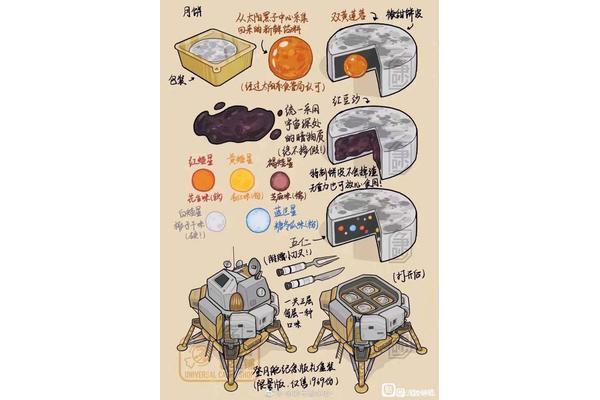 月饼
包装
从太阳黑子中心采集
回来的新鲜馅料
(经过太阳系食管局认可)
双黄莲蓉
微甜饼皮
统一采用
宇宙深处
的暗物质
(绝不掺假!)
红豆沙
特制饼皮不会掉渣
无重力也可放心食用!
红矮星
黄矮星
褐矮星
芝麻味(糯)
白矮星
椰子干味
(硬!)
蓝巨星
糖冬瓜味(粉)
五仁
(附赠小刀叉!)
一共三层
每层一种
口味
(打开后)
登月舱纪念版礼盒装
(限量版,仅售1969份)
UNIVERSAL